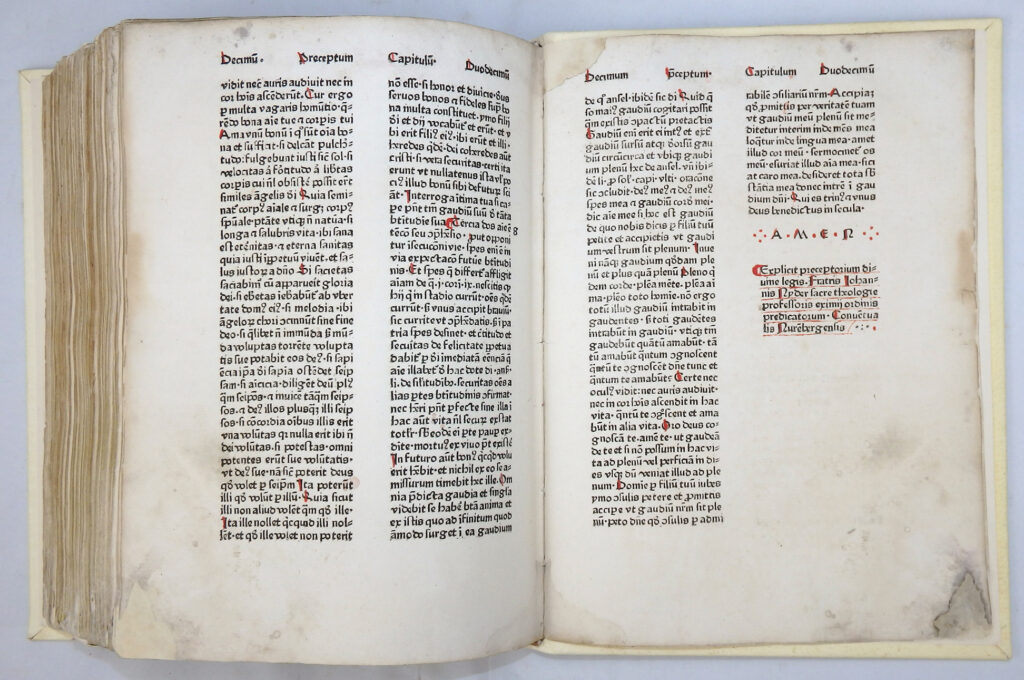 Decimū · Preceptum Capitulū · Duodecimū
vidit nec̄ auris audiuit nec in
cor hoīs ascēderūt · Cur ergo
ꝑ multa vagaris homūtio · q̄-
rēdo bona aīe tue ⁊ corꝑis tui
Ama vnū bonū ī q̊ sūt oīa bo-
na et suffiat · si delcāt pulch̄i-
tudo · fulgebunt iusti sic̄ sol · si
velocitas ā fōtitudo ā libtas
corꝑis cui nl̄ obsistē possit erūt
similes āgelis d̄i Quia semi-
nat̄ corpꝰ aīale ⁊ surgꝫ corpꝰ
spūale · ptāte vtiqꝫ n̄ natūa · si
longa ⁊ salubris vita · ibi sana
est et̄nitas · ⁊ eterna sanitas
quia iusti iꝑpetuū viuēt · et sa-
lus iustoꝝ a dn̄o Si societas
dei · si ebrietas iebriabūt̄ ab vber
tate dom
āgeloꝝ chori ꝯcinūt sine fine
deo · si q̄libet n̄ immūda sꝫ mū
da voluptas torrēte volupta
tis sue potabit eos deꝰ · si sapi
ēcia ip̄a d̄i sapia ostēdet seip̄
sam · si aīcicia · diligēt deū plꝰ
q̄m seip̄os · ⁊ inuicē tāq̄m seip̄
sos · ⁊ deꝰ illos plusqꝫ illi seip̄
sos · si cōcordia oībus illis erit
vna volūtas qꝛ nulla erit ibi n̄
dei volūtas · si potestas · omni
potentes erūt sue volūtatis ·
vt deꝰ sue · nā sic̄ poterit deus
q̊d volet ꝑ seip̄m Ita poterūt
illi q̊d volūt ꝑ illū · Quia sicut
illi non aliud volēt q̄m q̊d ille ·
Ita ille nollet q̄cquid illi nol-
lēt · et q̊d ille volet non poterit
nō esse · si honoꝛ et diuicie · d̄us
seruos bonos ⁊ fideles supꝛ bo
na multa constituet · ymo filij
d̄i et dij vocabūt̄ et erūt · et v
bi erit filiꝰ eiꝰ · ibi erūt et illi ·
heredes q̄dē · dei coheredes aūt
cristi · si vera securitas · certi ita
erunt vt nullatenus ista vl̄ po
ciꝰ illud bonū sibi defutuꝝ sci
āt · Interroga itima tua si ca-
btitudīe sua Tercia dos aīe ē
tur isecuconi vie · spes enī ē in
via expectaco future btitudi
nis · Et spes q̄ differt̄ affligit
aīam
hij q̄ in stadio currūt · oēs q̄dē
currūt · sꝫ vnus accipit brauiū ·
sic currite vt ꝯp̄hēdatis · sꝫ ī pa
tria spes desinet · et cēitudo et
securitas de felicitate ꝑpetua
habit̄ ꝑ d̄i imediatā eēnciā q̄
aīe illabet̄
li · de silitudībꝰ · securitas oēs a
lias ꝑtes btitudinis ꝯfirmat ·
nec h̄ri pn̄t ꝑfecte sine illa ī
hac aūt vita nl̄ secuꝝ exstat
In futuro aūt bonꝰ q̄cq̊d volu
erit h̄ebit · et nichil ex eo se a-
missurum timebit h̄ec ille · Om
nia p̄dicta gaudia et singla
videbit se habē btā anima et
ex istis quo ad īfinitum quod
āmodo surget ī ea gaudium
Decimum Pceptum · Capitulum Duodecimū
de q̊ ansel · ibidē sic d̄i Quid q̄
so maiꝰ gaudiū cogitari possit
q̄m existis ꝯpactū pretactis
Gaudiū enī erit eī intꝰ et extꝰ
gaudiū sursū atqꝫ dorsū gau
diū circūcirca et vbiqꝫ gaudi
um plenū h̄ec de ansel · vn̄ ibi-
sic ꝯcludit · deꝰ meꝰ ⁊ deꝰ meꝰ
spes mea ⁊ gaudiū cordꝭ mei ·
dic aīe mee si hoc est gaudiū
de quo nobis dicis ꝑ filiū tuū
petite et accipietis vt gaudi
um vestrum sit plenum · Inue
ni nāqꝫ gaudium qͦddam ple
nū et plus quā plenū Pleno q̄
dem corde · plēa mēte · plēa aī
ma · plēo toto homīe · nō ergo
totū illud gaudiū intrabit in
gaudentes · sꝫ toti gaudētes
intrabūt in gaudiū · vtiqꝫ tm̄
gaudebūt quātū amabūt · tā
tū amabūt q̄ntum ꝯgnoscent
q̄ntū te ꝯgnoscēt dn̄e tunc et
q̄ntum te amabūt Certe nec
oculꝰ vidit · nec auris audiuit ·
nec in cor hoīs ascendit in hac
vita · q̄ntū te ꝯgscent et ama
būt in alia vita · Oro deus co-
gnoscā te · amē te · vt gaudeā
de te et si nō possum in hac vi-
ta ad plenū vel ꝓficiā in di-
es vsqꝫ dū veniat illud ad ple
num · Domīe ꝑ filiū tuū iubes
ymo ꝯsulis petere et ꝓmittis
accipe vt gaudiū nr̄m sit ple
nū · peto dn̄e q̊d ꝯsulis ꝑ admi
rabilē ꝯsiliariū nr̄m · Accipiaꝫ
q̊d ꝓmittis per veritatē tuam
vt gaudiū meū plenū sit me-
ditetur interim inde mēs mea
loq̄tur inde lingua mea · amet
illud cor meū · sermocinet̄ os
meū · esuriat illud aīa mea · sici
at caro mea · desideret tota sb̄
stātia mea donec intrē ī gau
dium dn̄i · Qui es trinꝰ ⁊ vnus
deus benedictus in secula ·
· A · M · E · N ·
Explicit preceptorium di-
uine legis · Fratris Iohan-
nis Nyder sacre theologie
professoris eximij ordinis
predicatorum · Conuentua
lis Nurēbergensis